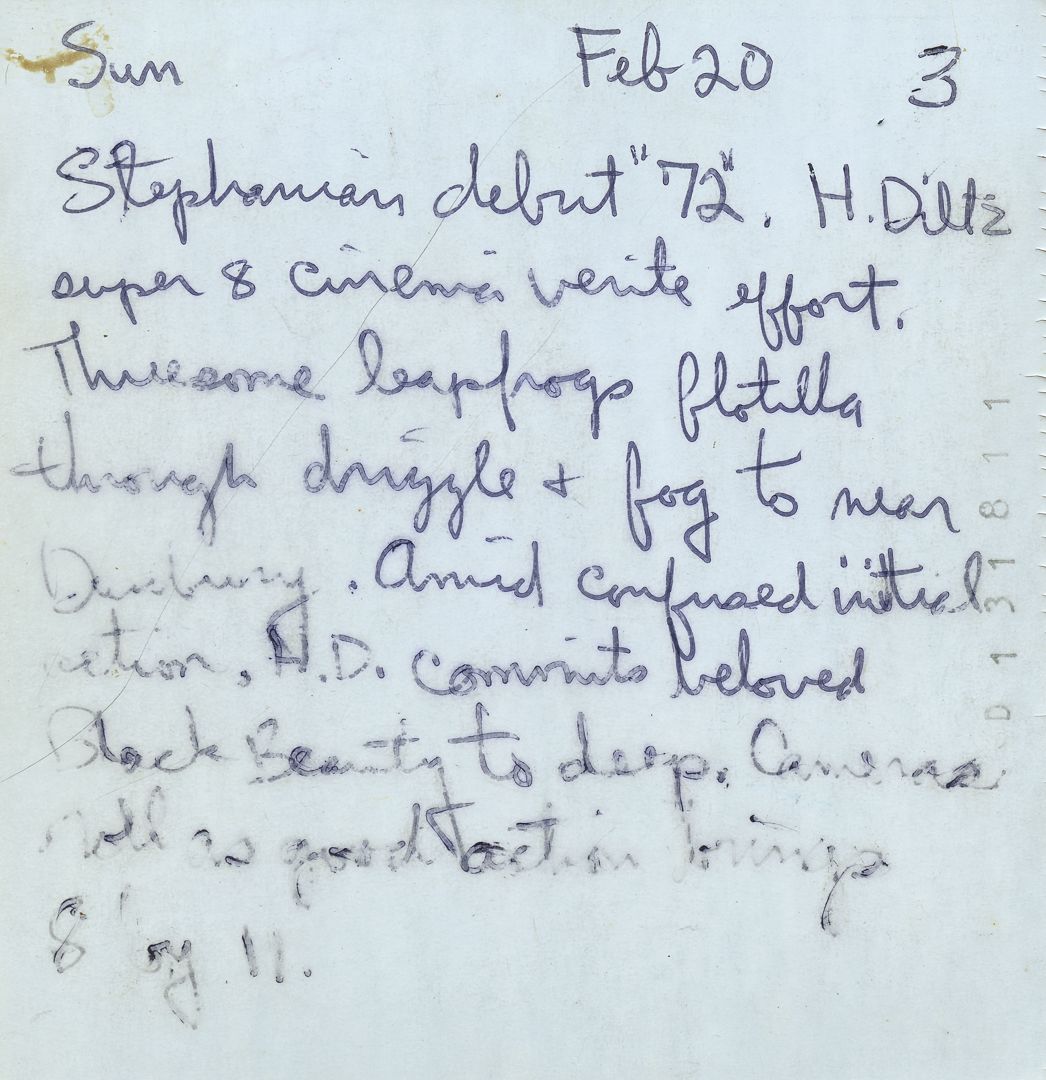 Sun Feb 20 3
Stephanian debut "'72". H. Diltz
super 8 cinema verite effort.
Threesome leapfrogs flotilla
through drizzle + fog to near
Danbury. Amid confused initial
action, H.D. commits beloved
Black Beauty to deep. Cameras
roll as good action brings
8 by 11.
D131811